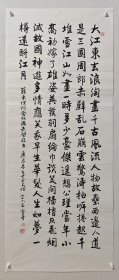 大江東去浪淘盡千古風流人物故壘西邊人道
是三國周郎赤壁亂石崩雲驚濤拍岸捲起千
堆雪江山如畫一時多少豪傑遙想公瑾當年小
喬初嫁了雄姿英發羽扇綸巾談笑間檣櫓灰飛煙
滅故國神遊多情應笑我早生華髮人生如夢一
樽還酹江月 蘇東坡詞念奴嬌赤壁懷古